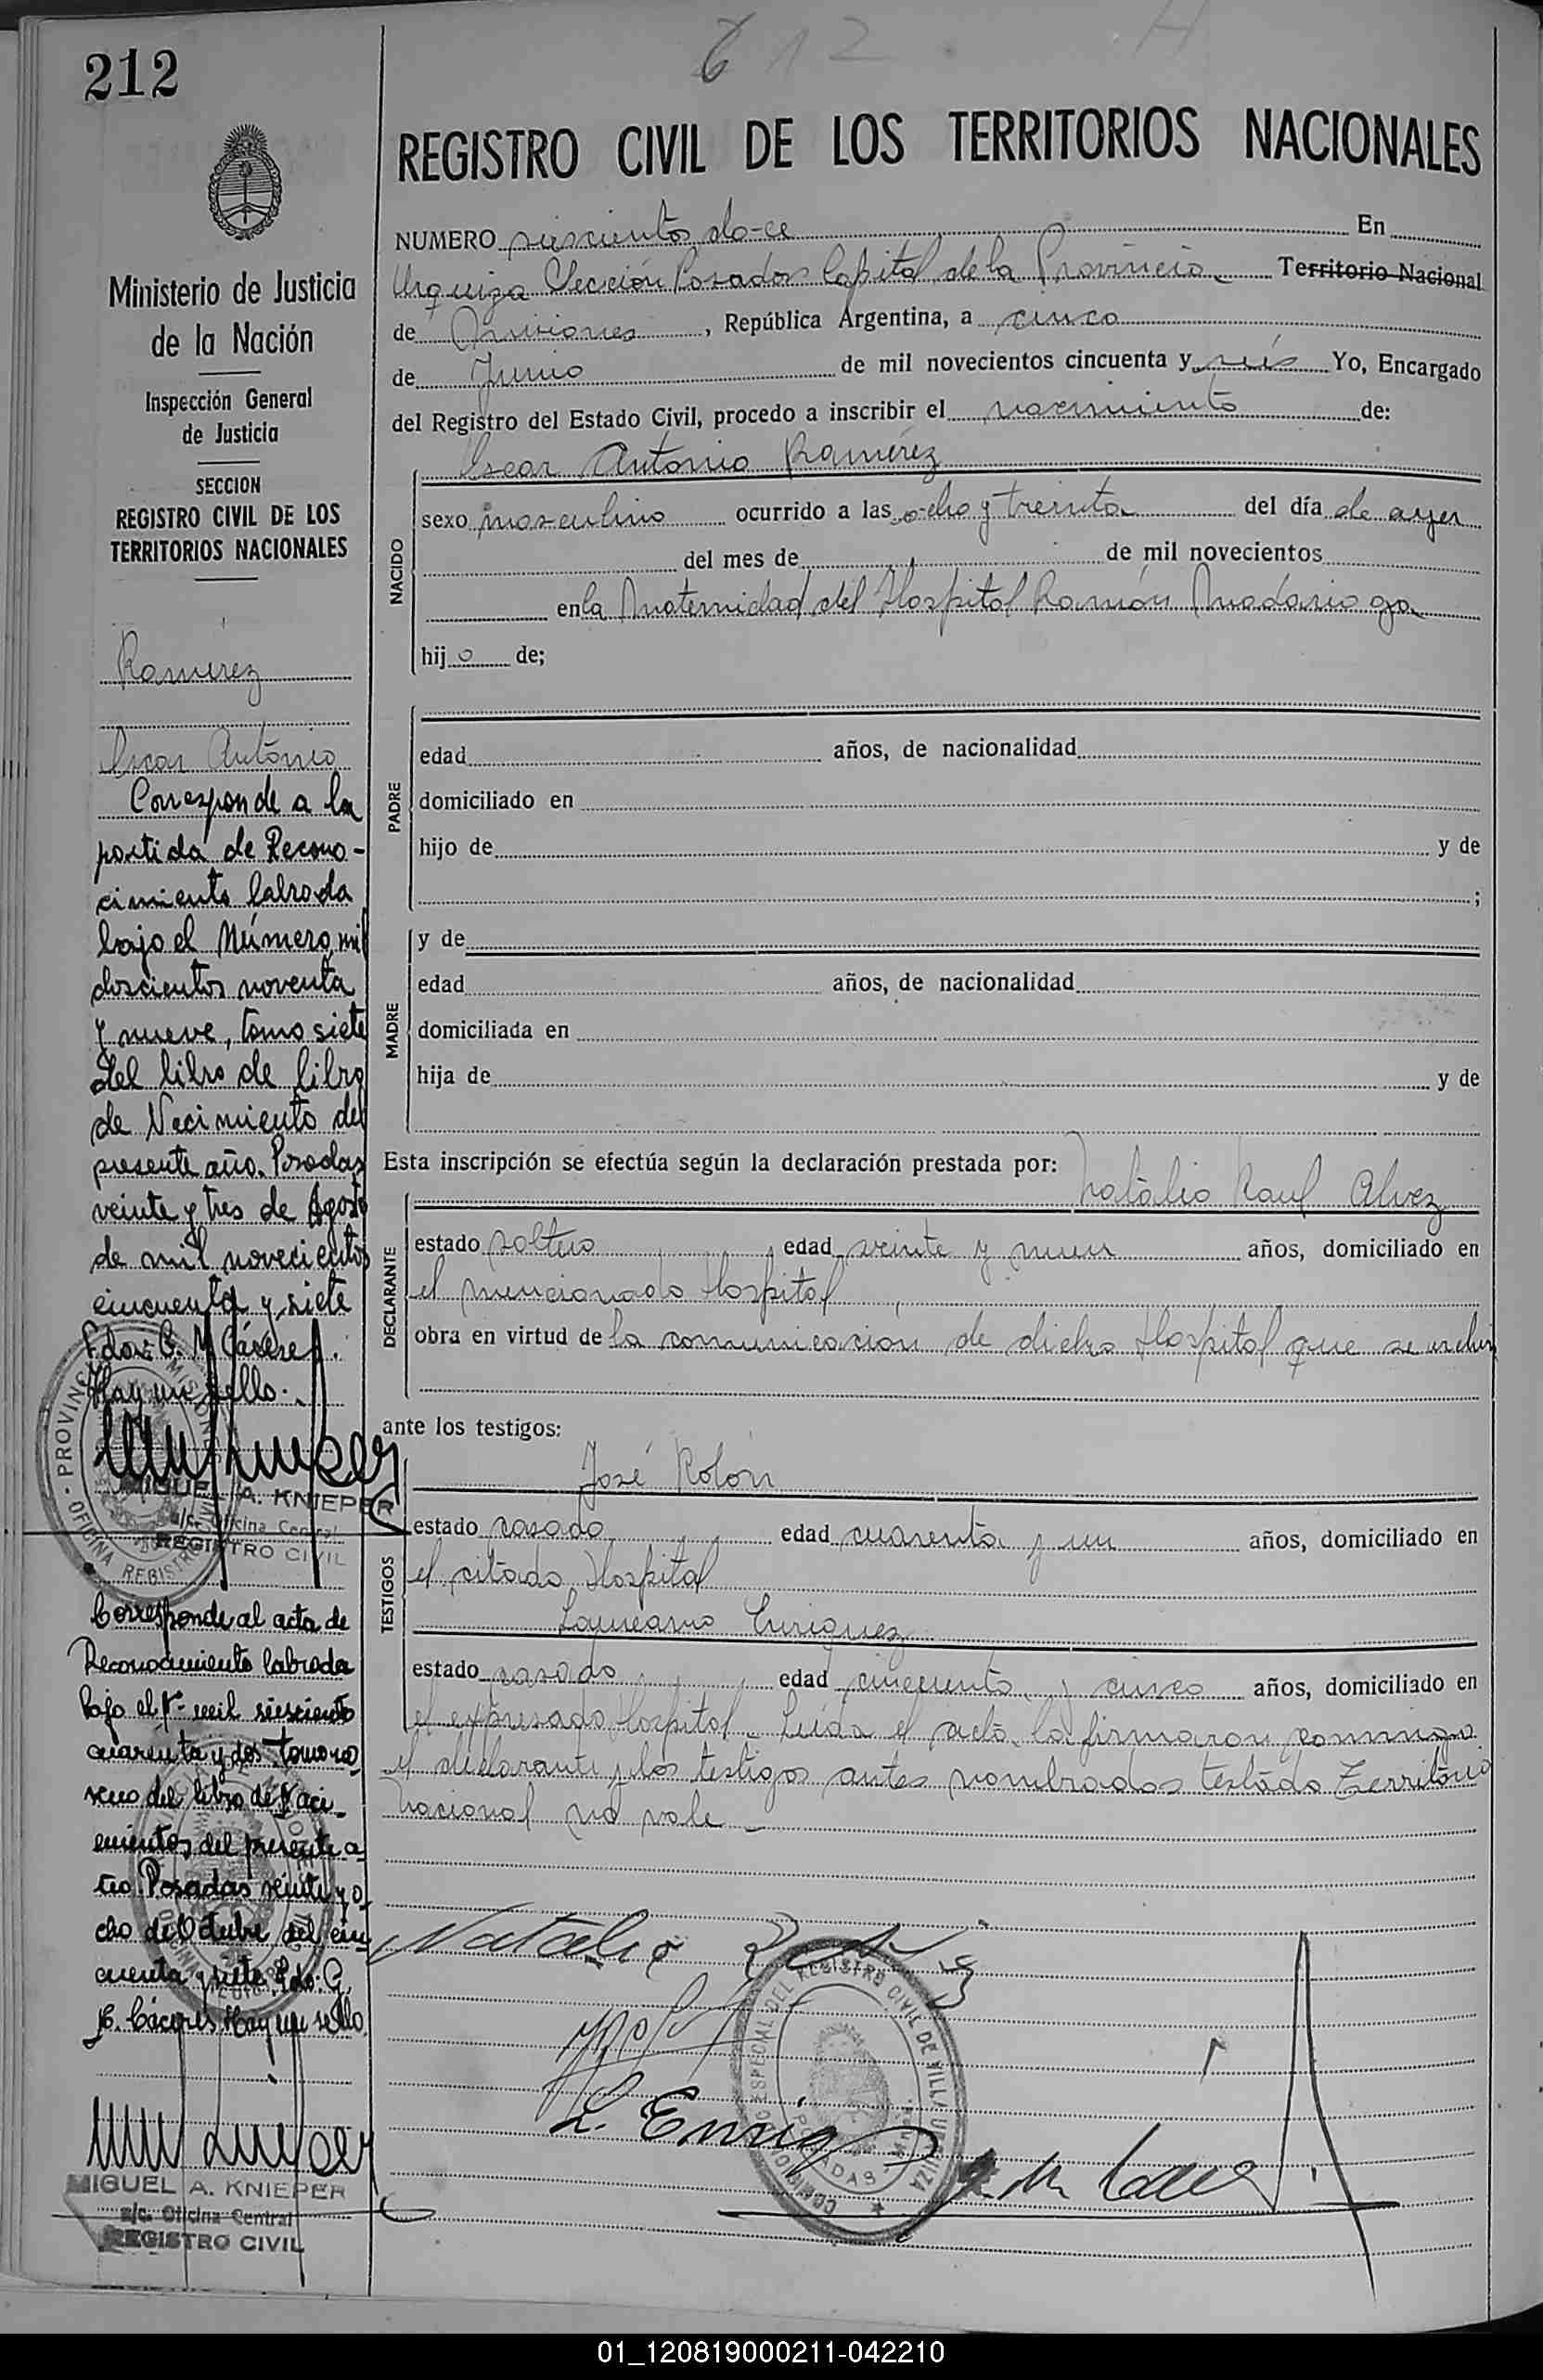 212
612
REGISTRO CIVIL DE LOS TERRITORIOS NACIONALES
Ministerio de Justicia
de la Nación
Inspección General
de Justicia
SECCION
REGISTRO CIVIL DE LOS
TERRITORIOS NACIONALES
Ramírez
Oscar Antonio
Corresponde a la
partida de Recono-
cimiento labrada
bajo el Número mil
doscientos noventa
y nueve, tomo siete
del libro de libro
de Nacimiento del
presente año. Posadas
veinte y tres de Agosto
de mil novecientos
cincuenta y siete
Fdo: G. M. Cáceres.
Hay un sello.
PROVINCIA MISIONES
OFICINA REGISTRO
MIGUEL A. KNIEPER
a/c. Oficina Central
REGISTRO CIVIL
Corresponde al acta de
Reconocimiento labrada
bajo el Nº mil seiscientos
cuarenta y dos tomo no
veno del libro de Naci-
mientos del presente a
ño Posadas veinte y o
cho de Octubre del cin
cuenta y siete Fdo: G.
M. Cáceres. Hay un sello.
MIGUEL A. KNIEPER
a/c. Oficina Central
REGISTRO CIVIL
NUMERO seiscientos do-ce En
Urquiza Sección Posadas Capital de la Provincia Territorio Nacional
de Misiones, República Argentina, a cinco
de Junio de mil novecientos cincuenta y seis Yo, Encargado
del Registro del Estado Civil, procedo a inscribir el nacimiento de:
NACIDO
Oscar Antonio Ramírez
sexo masculino ocurrido a las ocho y treinta del día de ayer
del mes de de mil novecientos
en la Maternidad del Hospital Ramón Madariaga
hijo de;
PADRE
edad años, de nacionalidad
domiciliado en
hijo de y de
;
MADRE
y de
edad años, de nacionalidad
domiciliada en
hija de y de
Esta inscripción se efectúa según la declaración prestada por:
DECLARANTE
Natalio Raul Alvez
estado soltero edad veinte y nueve años, domiciliado en
el mencionado Hospital
obra en virtud de la comunicación de dicho Hospital que se archiva
ante los testigos:
TESTIGOS
José Rolón
estado casado edad cuarenta y un años, domiciliado en
el citado Hospital
Laureano Enriquez
estado casado edad cincuenta y cinco años, domiciliado en
el expresado Hospital. Leida el acta la firmaron conmigo
el declarante y los testigos antes nombrados testado Territorio
Nacional no vale
Natalio R Alvez
L. Enriquez
COMISIONADO ESPECIAL DEL REGISTRO CIVIL DE VILLA URQUIZA
POSADAS
01_120819000211-042210